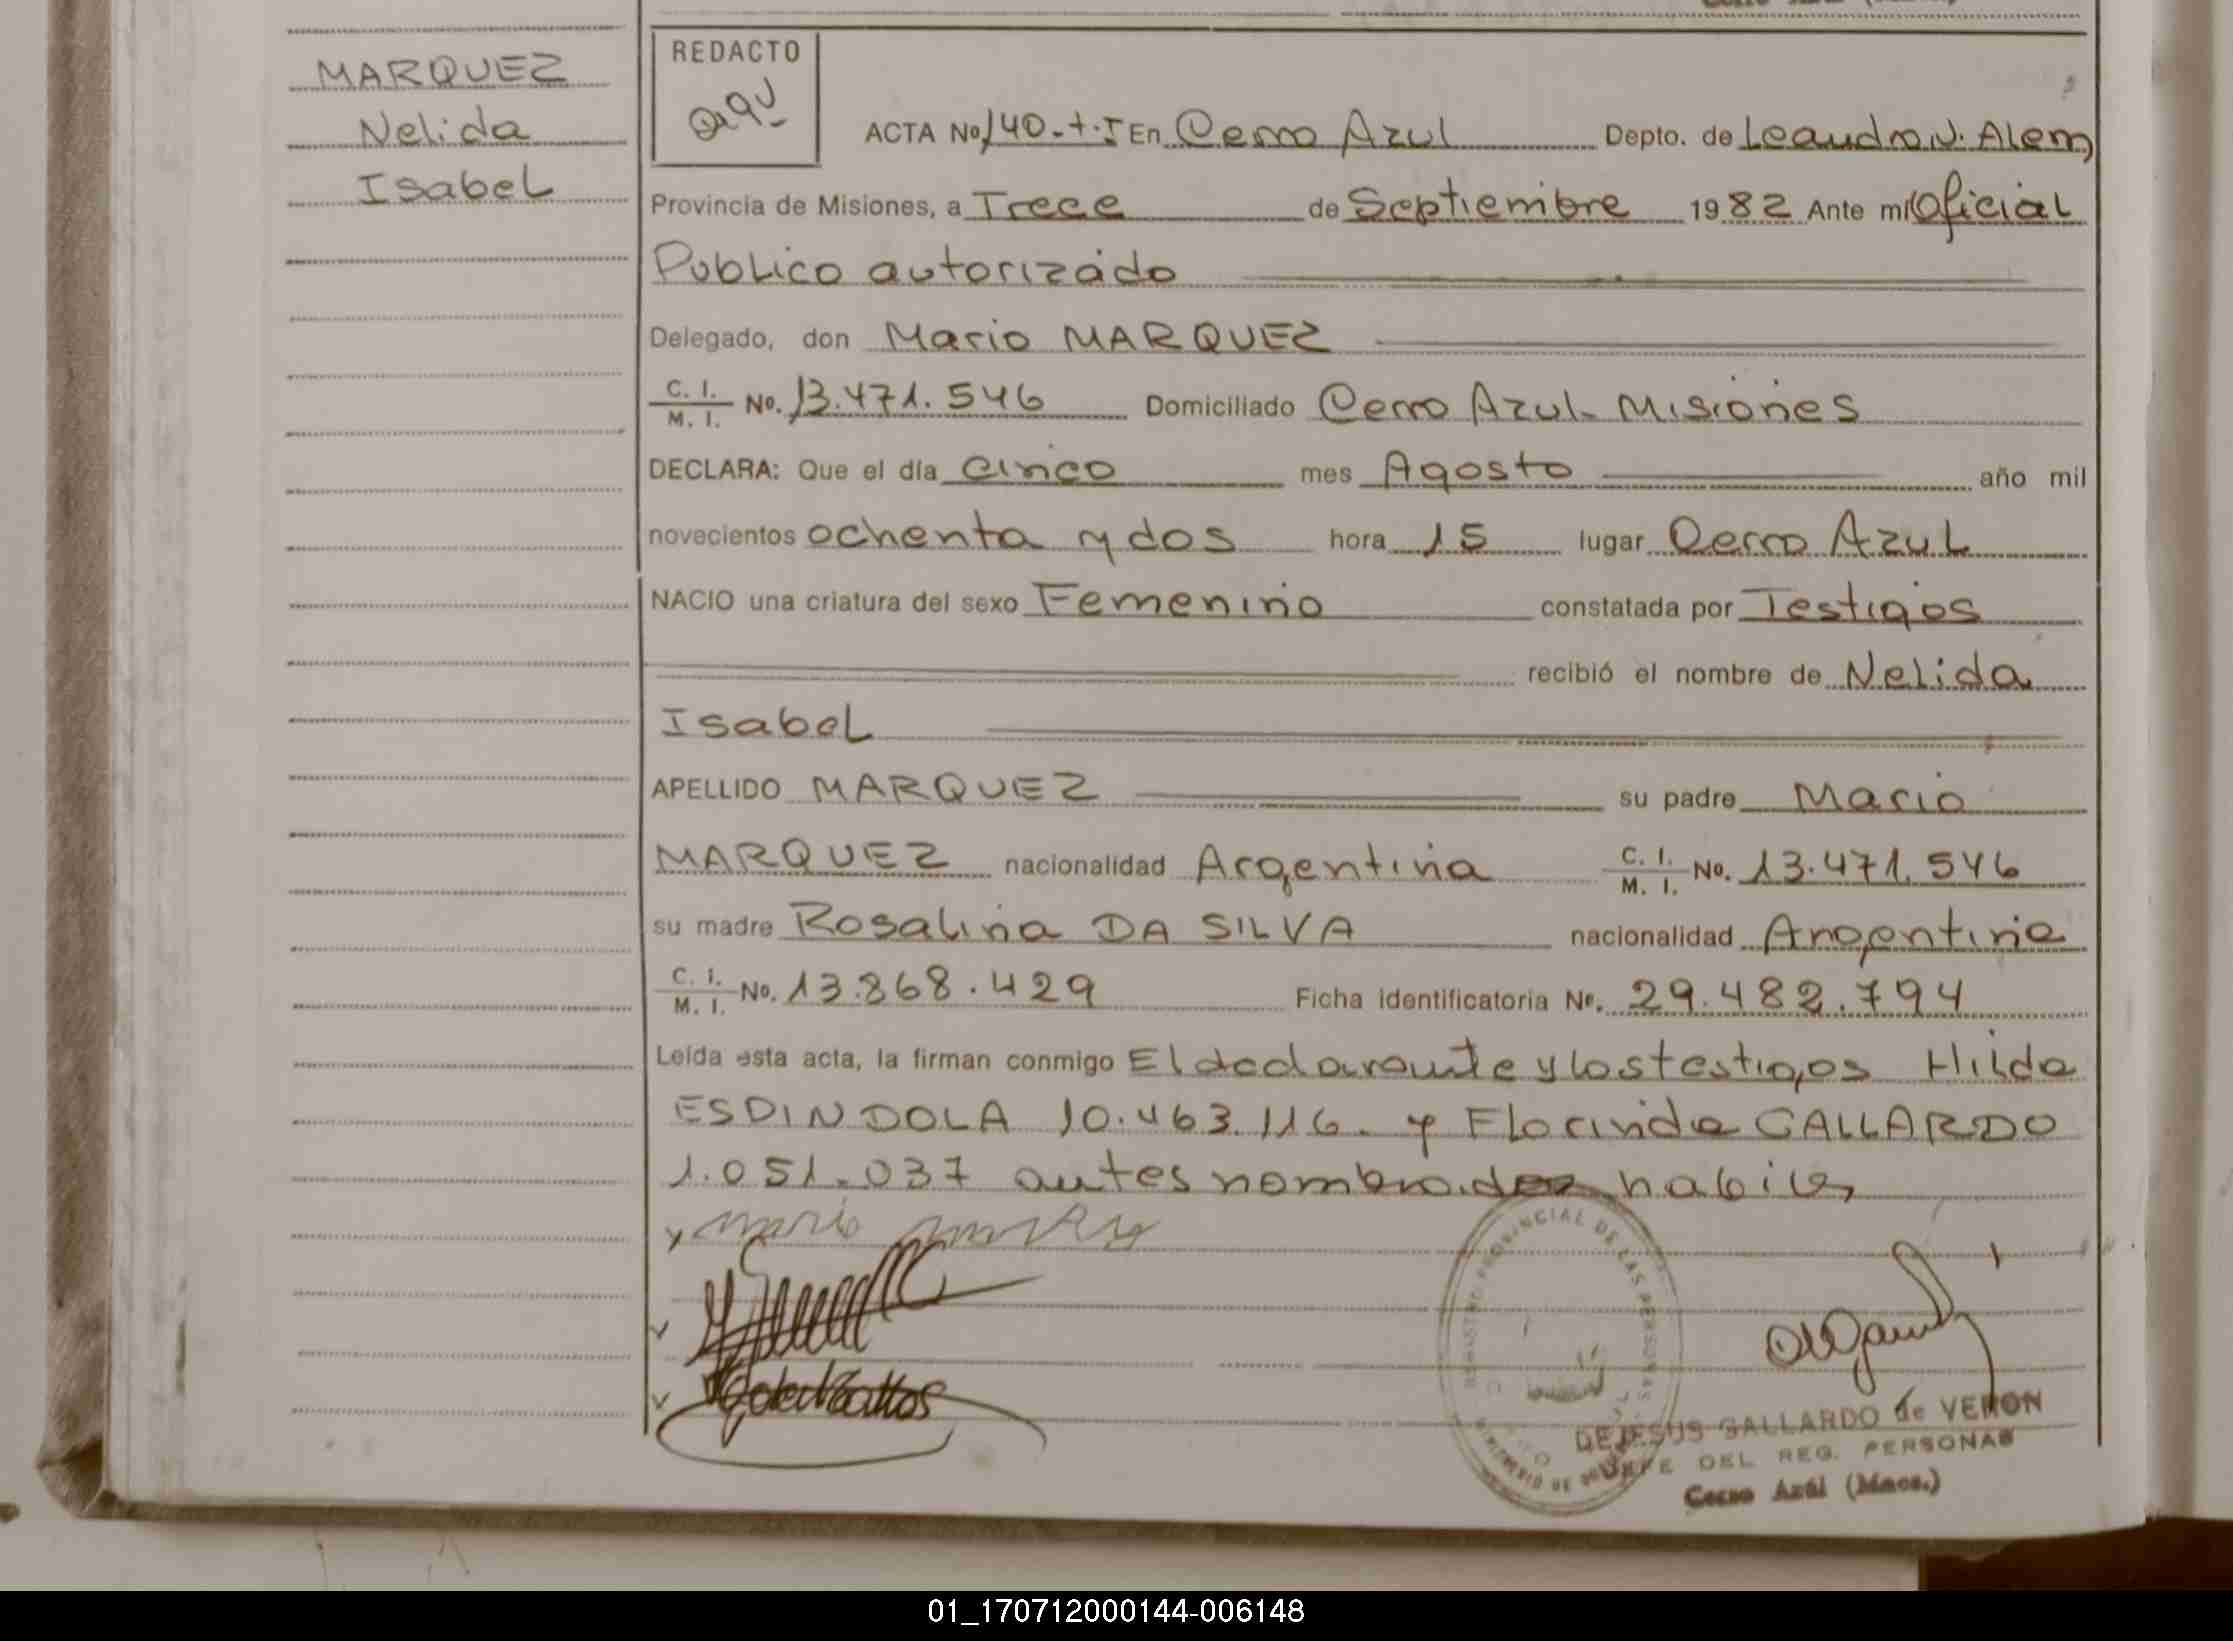 MARQUEZ
Nelida
Isabel
REDACTO
ACTA No 140-t·I En Cerro Azul Depto. de Leandro N. Alem
Provincia de Misiones, a Trece de Septiembre 1982 Ante mi Oficial
Publico autorizado
Delegado, don Mario MARQUEZ
C. I. M. I. No. 13.471.546 Domiciliado Cerro Azul- Misiones
DECLARA: Que el día cinco mes Agosto año mil
novecientos ochenta y dos hora 15 lugar Cerro Azul
NACIO una criatura del sexo Femenino constatada por Testigos
recibió el nombre de Nelida
Isabel
APELLIDO MARQUEZ su padre Mario
MARQUEZ nacionalidad Argentina C. I. M. I. No. 13.471.546
su madre Rosalina DA SILVA nacionalidad Argentina
C. I. M. I. No. 13.868.429 Ficha identificatoria No. 29.482.794
Leída esta acta, la firman conmigo El declarante y los testigos Hilda
ESDINDOLA 10.463.116. y Florinda GALLARDO
1.051.037 antes nombrados habiles
Mario
REGISTRO PROVINCIAL DE LAS PERSONAS
DEJESUS GALLARDO de VERON
JEFE DEL REG. PERSONAS
Cerro Azúl (Mnes.)
01_170712000144-006148